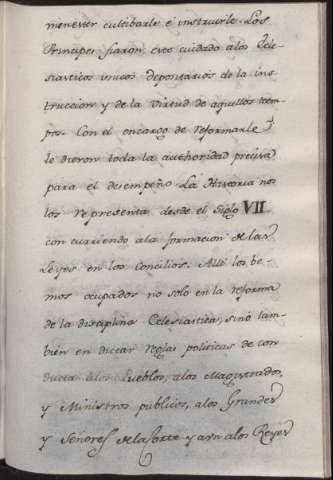 menester cultibarle è instruirle. Los
Principes fiaron este cuidado a los Ecle-
siasticos unicos depositarios de la ins-
truccion y de la virtud de aquellos tiem-
pos. Con el encargo de reformarle
le dieron toda la authoridad precisa
para el desempeño La Historia nos
los representa desde el Siglo VII
concurriendo a la formacion de las
Leyes en los Concilios. Alli los be-
mos ocupados no solo en la reforma
de la disciplina Eclesiastica, sinó tam-
bién en dictar reglas politicas de con-
ducta a los Pueblos, a los Magistrados,
y Ministros publicos, a los Grandes
y Señores de la Corte y aun a los Reyes